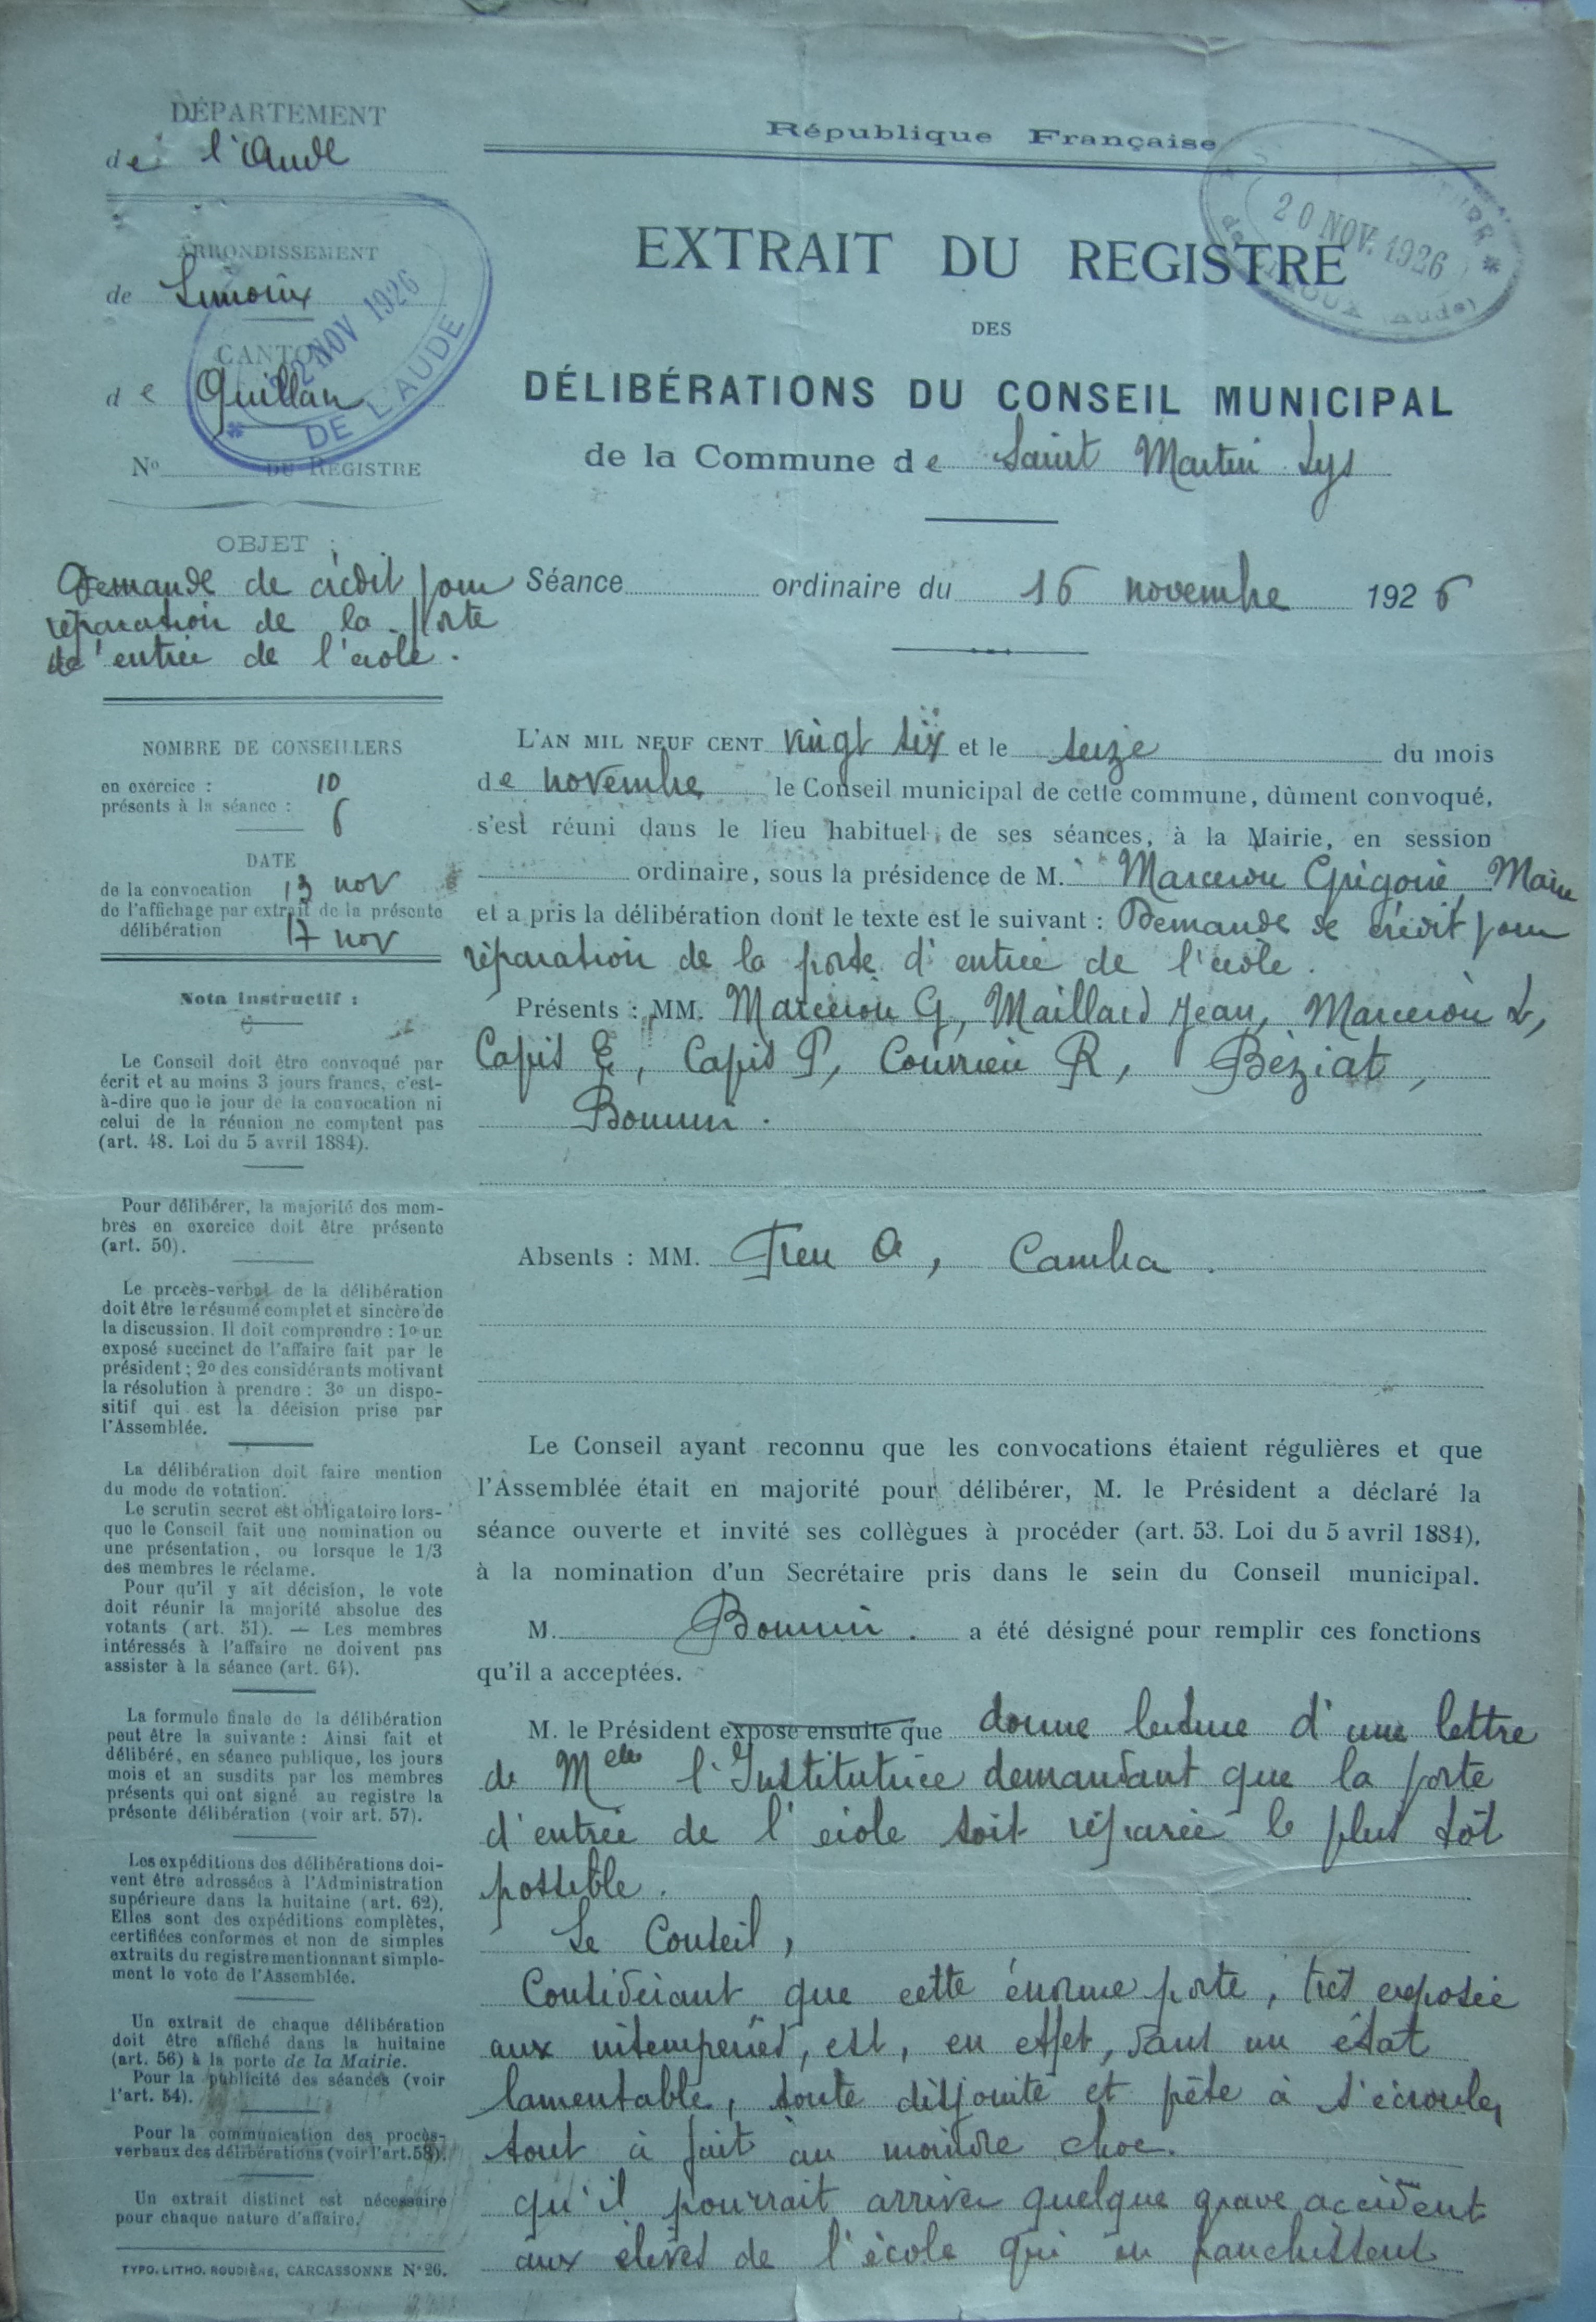 DÉPARTEMENT
de l'Aude
ARRONDISSEMENT
de Limoux
CANTON
de Quillan
No DU REGISTRE
22 NOV 1926
DE L'AUDE
OBJET :
Demande de crédit pour
réparation de la porte
d'entrée de l'école.
NOMBRE DE CONSEILLERS
en exercice : 10
présents à la séance : 6
DATE
de la convocation 13 nov
de l'affichage par extrait de la présente
délibération 17 nov
Nota Instructif :
Le Conseil doit être convoqué par
écrit et au moins 3 jours francs, c'est-
à-dire que le jour de la convocation ni
celui de la réunion ne comptent pas
(art. 48. Loi du 5 avril 1884).
Pour délibérer, la majorité des mem-
bres en exercice doit être présente
(art. 50).
Le procès-verbal de la délibération
doit être le résumé complet et sincère de
la discussion. Il doit comprendre : 1o un
exposé succinct de l'affaire fait par le
président ; 2o des considérants motivant
la résolution à prendre : 3o un dispo-
sitif qui est la décision prise par
l'Assemblée.
La délibération doit faire mention
du mode de votation.
Le scrutin secret est obligatoire lors-
que le Conseil fait une nomination ou
une présentation, ou lorsque le 1/3
des membres le réclame.
Pour qu'il y ait décision, le vote
doit réunir la majorité absolue des
votants (art. 51). — Les membres
intéressés à l'affaire ne doivent pas
assister à la séance (art. 64).
La formule finale de la délibération
peut être la suivante : Ainsi fait et
délibéré, en séance publique, les jours
mois et an susdits par les membres
présents qui ont signé au registre la
présente délibération (voir art. 57).
Les expéditions des délibérations doi-
vent être adressées à l'Administration
supérieure dans la huitaine (art. 62).
Elles sont des expéditions complètes,
certifiées conformes et non de simples
extraits du registre mentionnant simple-
ment le vote de l'Assemblée.
Un extrait de chaque délibération
doit être affiché dans la huitaine
(art. 56) à la porte de la Mairie.
Pour la publicité des séances (voir
l'art. 54).
Pour la communication des procès-
verbaux des délibérations (voir l'art. 58).
Un extrait distinct est nécessaire
pour chaque nature d'affaire.
TYPO. LITHO. ROUDIÈRE, CARCASSONNE No 26.
République Française
20 NOV. 1926
de LIMOUX (Aude)
EXTRAIT DU REGISTRE
DES
DÉLIBÉRATIONS DU CONSEIL MUNICIPAL
de la Commune de Saint Martin Lys
Séance ordinaire du 16 novembre 1926
L'AN MIL NEUF CENT vingt six et le seize du mois
de novembre le Conseil municipal de cette commune, dûment convoqué,
s'est réuni dans le lieu habituel de ses séances, à la Mairie, en session
ordinaire, sous la présidence de M. Marcerou Grégoire, Maire
et a pris la délibération dont le texte est le suivant : Demande de crédit pour
réparation de la porte d'entrée de l'école.
Présents : MM. Marcerou G, Maillard Jean, Marcerou L,
Capis E, Capis P, Courrieu R, Béziat,
Bonnin.
Absents : MM. A, Camba.
Le Conseil ayant reconnu que les convocations étaient régulières et que
l'Assemblée était en majorité pour délibérer, M. le Président a déclaré la
séance ouverte et invité ses collègues à procéder (art. 53. Loi du 5 avril 1884),
à la nomination d'un Secrétaire pris dans le sein du Conseil municipal.
M. Bonnin. a été désigné pour remplir ces fonctions
qu'il a acceptées.
M. le Président expose ensuite que donne lecture d'une lettre
de Melle l'Institutrice demandant que la porte
d'entrée de l'école soit réparée le plus tôt
possible.
Le Conseil,
Considérant que cette énorme porte, très exposée
aux intemperies, est, en effet, dans un état
lamentable, toute disjointe et prête à s'écrouler
tout à fait au moindre choc.
qu'il pourrait arriver quelque grave accident
aux élèves de l'école qui en franchissent